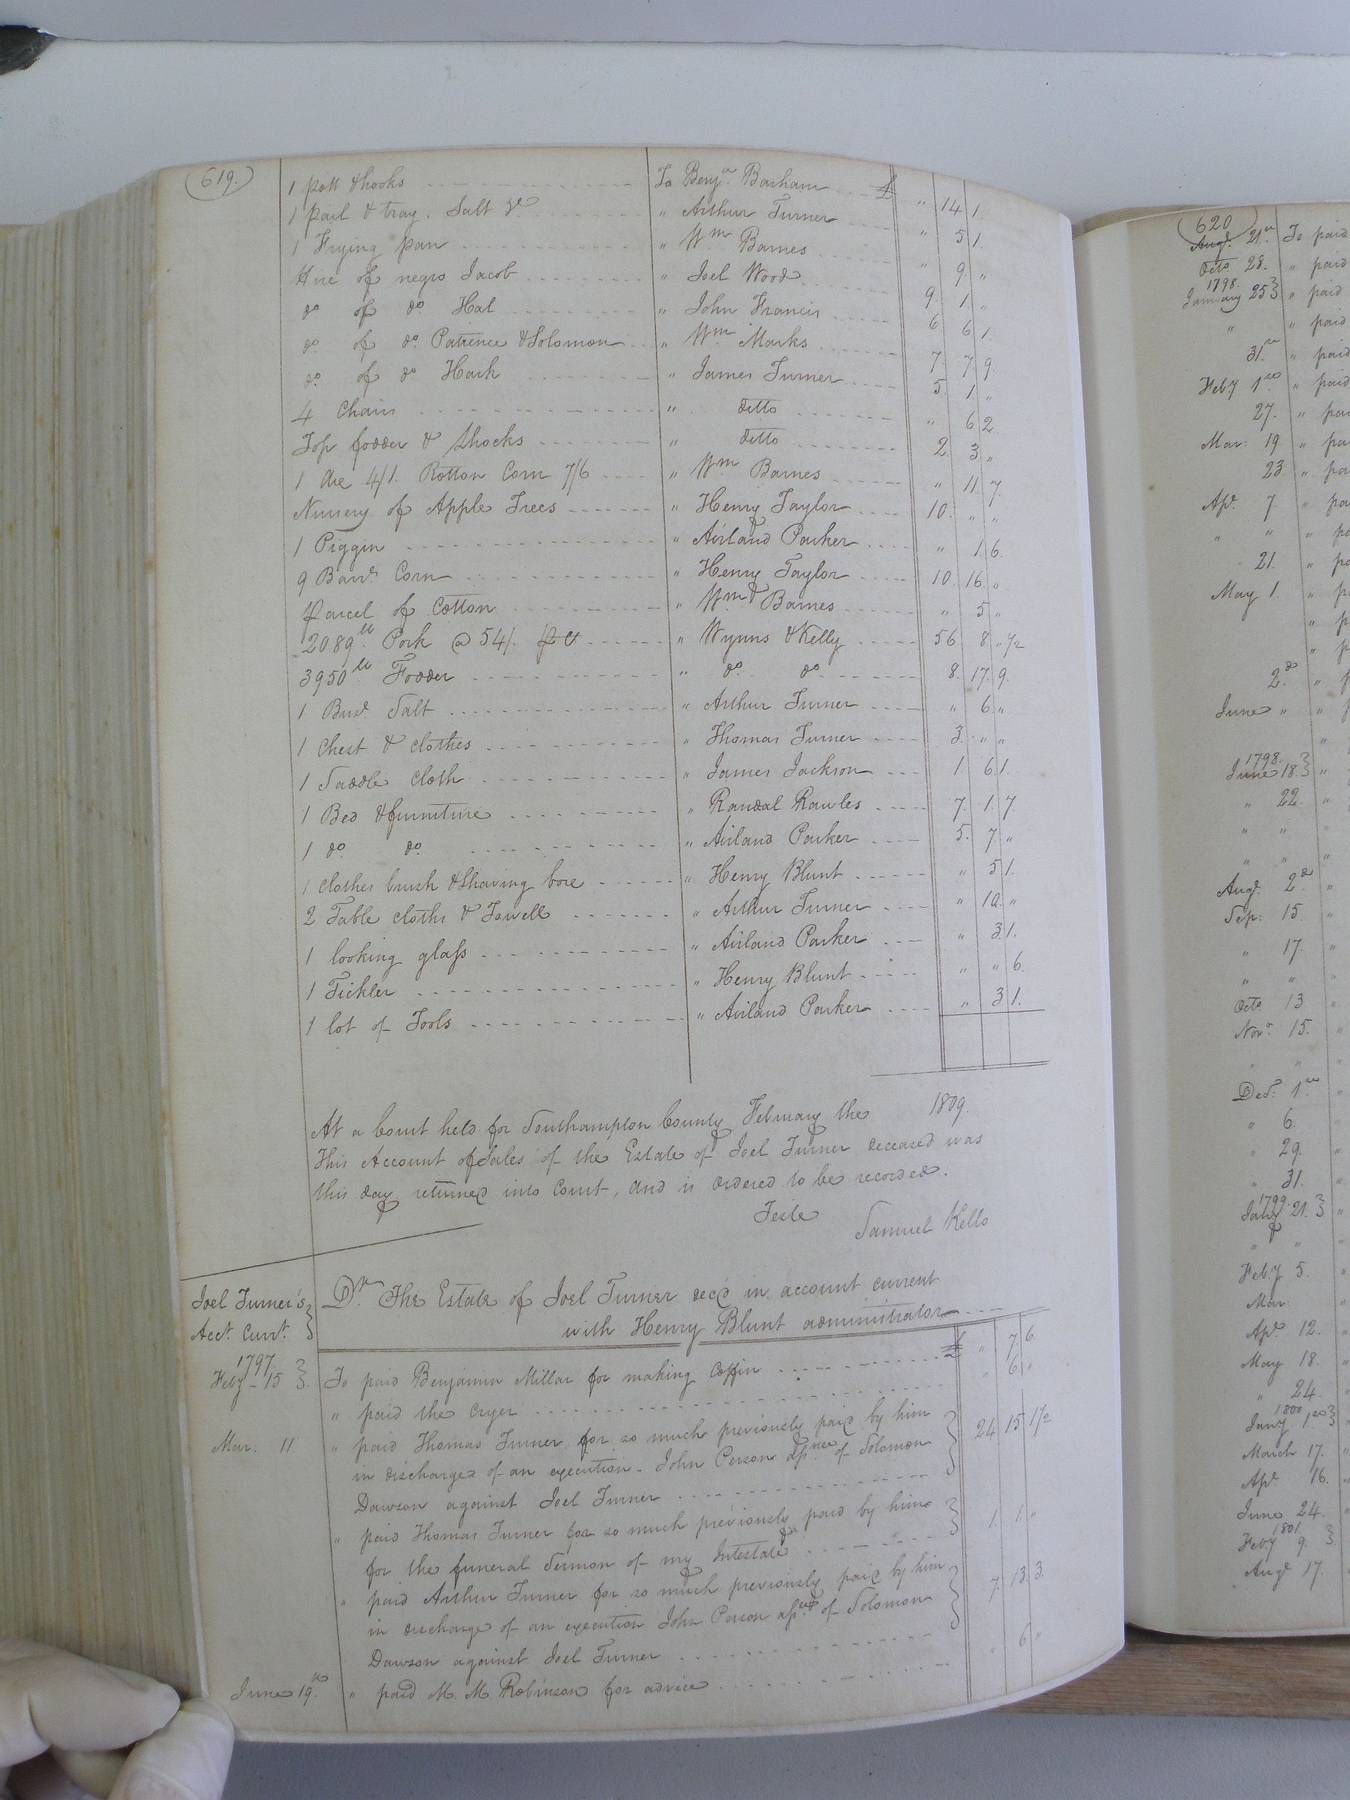 619.
1 pott & hooks To Benjn Barham £ " 14 1.
1 pail & tray. Salt &c " Arthur Turner " 5 1.
1 Frying pan " Wm Barnes " 9. "
Hire of negro Jacob " Joel Wood 9. 1. "
do of do Hal " John Francis 6 6 1
do of do Patience & Solomon " Wm Marks 7. 7 9
do of do Hark " James Turner 5. 1. "
4 Chairs " ditto " 6 2
Top fodder & shocks " ditto 2 3 "
1 Axe 4/1. Rotton Corn 7/6 " Wm Barnes " 11 7.
Nursery of Apple Trees " Henry Taylor 10. " "
1 Piggin " Airland Parker " 1. 6.
9 Barrs Corn " Henry Taylor 10. 16. "
Parcel of Cotton " Wm Barnes " 5 "
2089 lb Pork @ 54/. " Wynns & Kelly 56. 8 " 1/2
3950 lb Fodder " do do 8. 17. 9.
1 Bus. Salt " Arthur Turner " 6 "
1 chest & clothes " Thomas Turner 3. " "
1 Saddle cloth " James Jackson 1. 6 1.
1 Bed & furniture " Randal Rawles 7. 1. 7.
1 do do " Airland Parker 5. 7 "
1 clothes brush & shaving box " Henry Blunt " 5 1.
2 Table cloths & Towell " Arthur Turner " 10. "
1 looking glass " Airland Parker " 3 1.
1 Tickler " Henry Blunt " " 6.
1 lot of Tools " Airland Parker " 3 1.
At a Court held for Southampton County February the 1809.
This Account of Sales of the Estate of Joel Turner deceased was
this day returned into Court, and is ordered to be recorded.
Teste Samuel Kello
Joel Turner's
Acct. Currt.
Dr. The Estate of Joel Turner decd in account current
with Henry Blunt administrator
1797
Feby - 15 To paid Benjamin Millar for making Coffin £ " 7. 6.
" paid the cryer " 6. "
Mar. 11 " paid Thomas Turner for so much previously paid by him
in discharge of an execution. John Person of Solomon 24 15 1 1/2
Dawson against Joel Turner
" paid Thomas Turner for so much previously paid by him
for the funeral Sermon of my Intestate 1. 1. "
" paid Arthur Turner for so much previously paid by him
in discharge of an execution John Person of Solomon 7. 13. 3.
Dawson against Joel Turner
June 19th " paid M. M. Robinson for advice " 6 "
620
Augt. 21st To paid
Octo 28. " paid
1798.
January 25 " paid
" " paid
31st " paid
Feby 1st " paid
27. " pai
Mar: 19 " pa
23 " pa
Apr. 7. " pa
" " " pa
21. " p
May 1. " p
" p
" p
2d "
June " "
"
1798.
June 18. "
" 22. "
" " "
" " "
Augt. 2d "
Sep: 15. "
" 17. "
" " "
Octo 13 "
Novr 15. "
" "
Decr. 1st "
" 6. "
" 29. "
" 31. "
1799.
Jany 21. "
" "
Feby 5. "
Mar
Apr. 12.
May 18.
" 24.
1800
Jany 1st
March 17.
Apr. 16.
June 24.
1801.
Feby 9.
Augt 17.